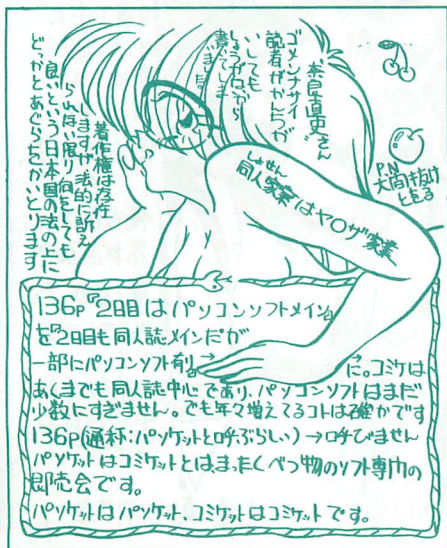 奈良直史さん
ゴメンナサイ
読者がかんちがい
いしても
しょうがないから
書いてしま
いました。
P.N
大間抜け
とをる
しょせん
同人家業はヤ○ザ家業
著作権は存在
しますが法的に訴え
られない限り何をしても
良いという日本国の法の上に
どっかとあぐらをかいとります
136P『2日目はパソコンソフトメイン』
を『2日目も同人誌メインだが
一部にパソコンソフト有』→に。コミケは
あくまでも同人誌中心であり、パソコンソフトはまだ
少数にすぎません。でも年々増えてるコトは確かです
136P(通称:パソケットと呼ぶらしい)→呼びません
パソケットはコミケットとはまったくべつ物のソフト専門の
即売会です。
パソケットはパソケット、コミケットはコミケットです。